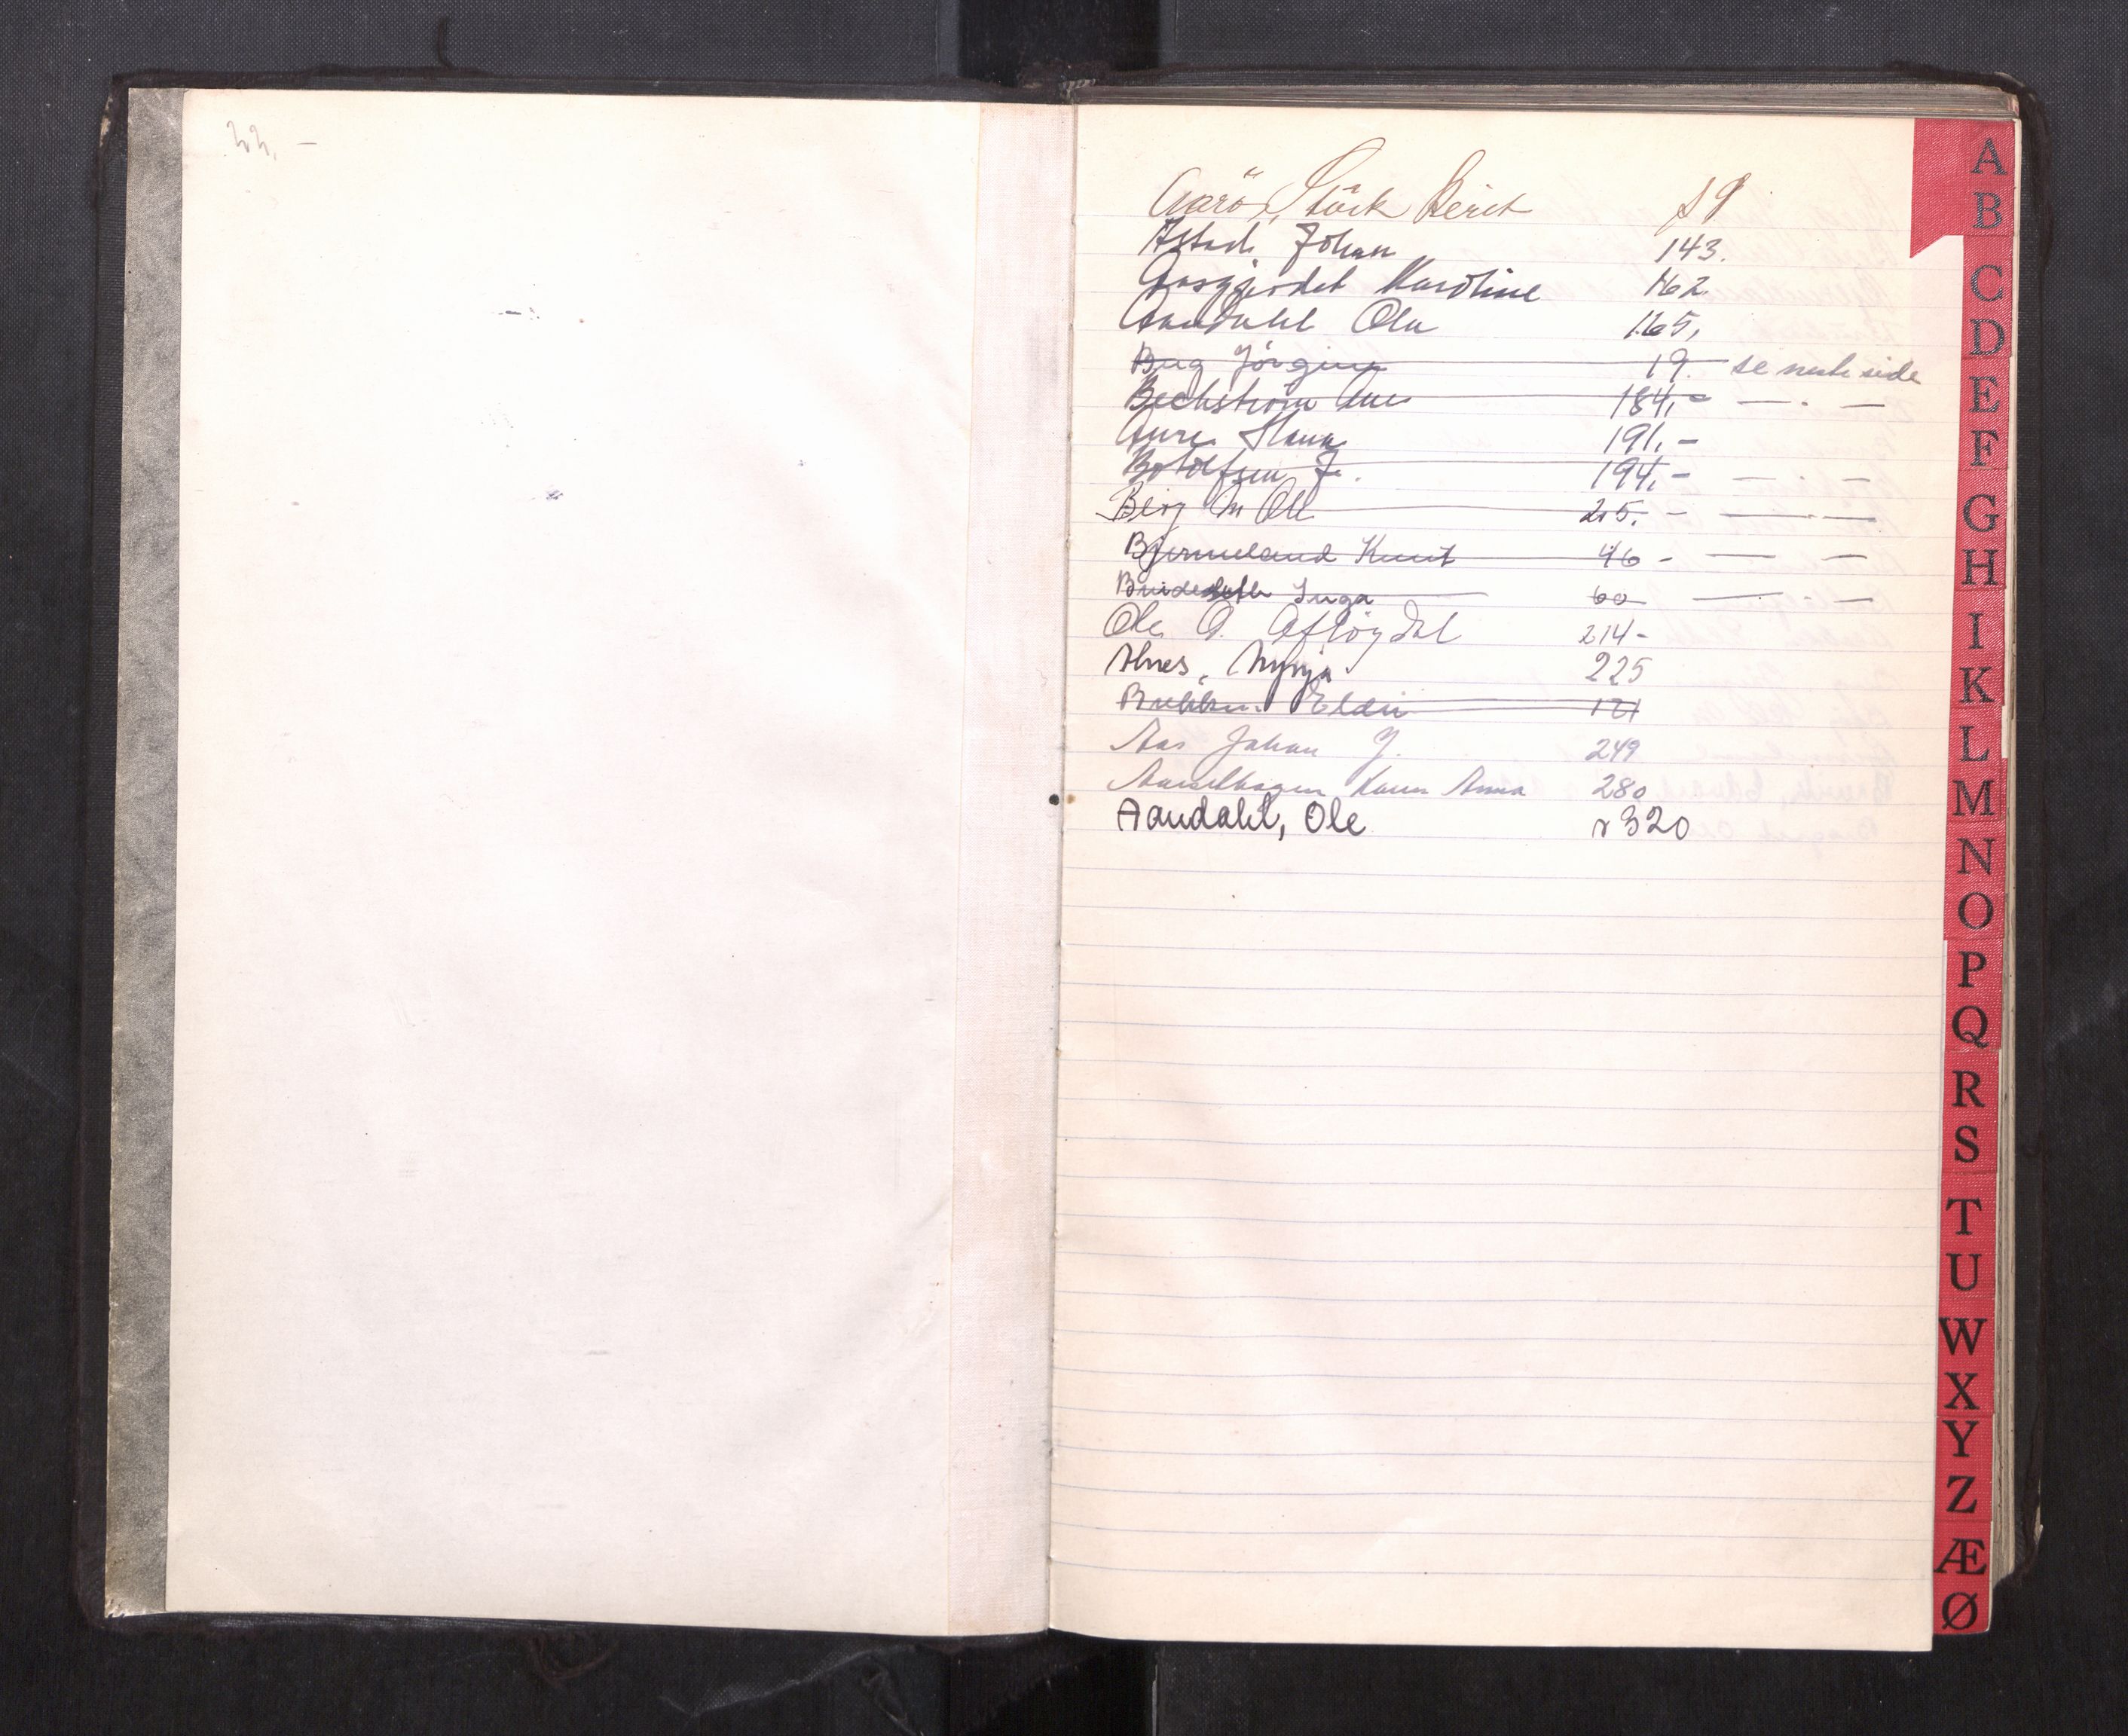 22. –
Aarö, Störk Berit s 9
Astad. Johan 143.
Aasgjerdet Karoline 162.
Aandahl Ola 165,
Berg Jörgine 19. se neste side
Bechström Ane 184, - — . —
Aure Hans 191. -
Botolfsen J. 194. - — . —
Berg M Ole 215. - — . —
Bjermeland Knut 46 - — —
Inga 60 — . —
Ole O. Afløydal 214 -
Alnes, 225
Eldri 121
Aas Johan J. 249
Karen Anna 280
Aandahl, Ole s 320
A
B
C
D
E
F
G
H
I
K
L
M
N
O
P
Q
R
S
T
U
W
X
Y
Z
Æ
Ø